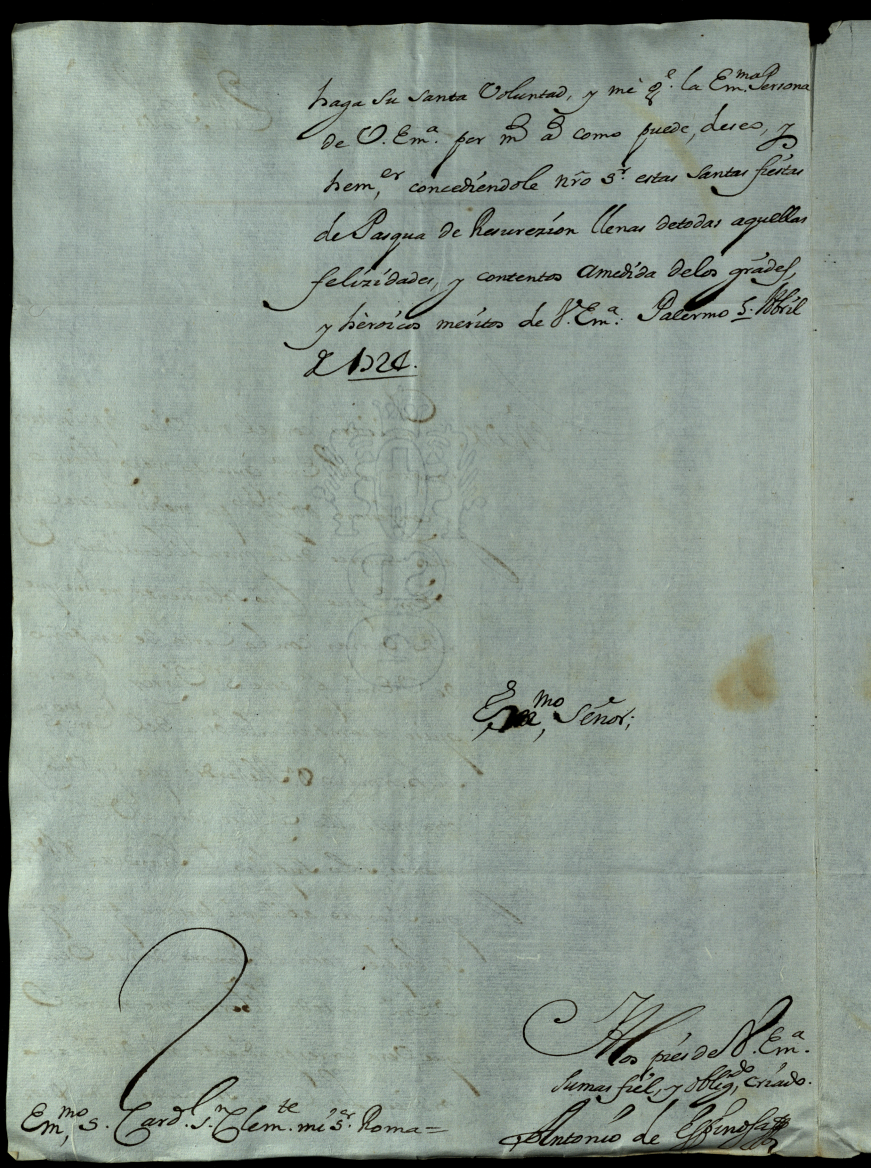 haga su santa Voluntad, y me g.^e la Em.^ma Persona
de V. Em.^a per m^s a^s como puede, deseo, y
hem,^er concediendole nr̃o s.^r estas santas fiestas
de Pasqua de Resurezion llenas detodas aquellas
felizidades, y contentos amedida delos grãdes,
y hèroicos meritos de V. Em.^a: Palermo 5. Abril
d 1724.
Em^mo, Señor;
A los pies de V. Em^a.
su mas fiel, y oblig^do, criado.
Antonio de Espinosa
Em^mo, s. Card.^l S.^n Clem.^te mi s.^er Roma=